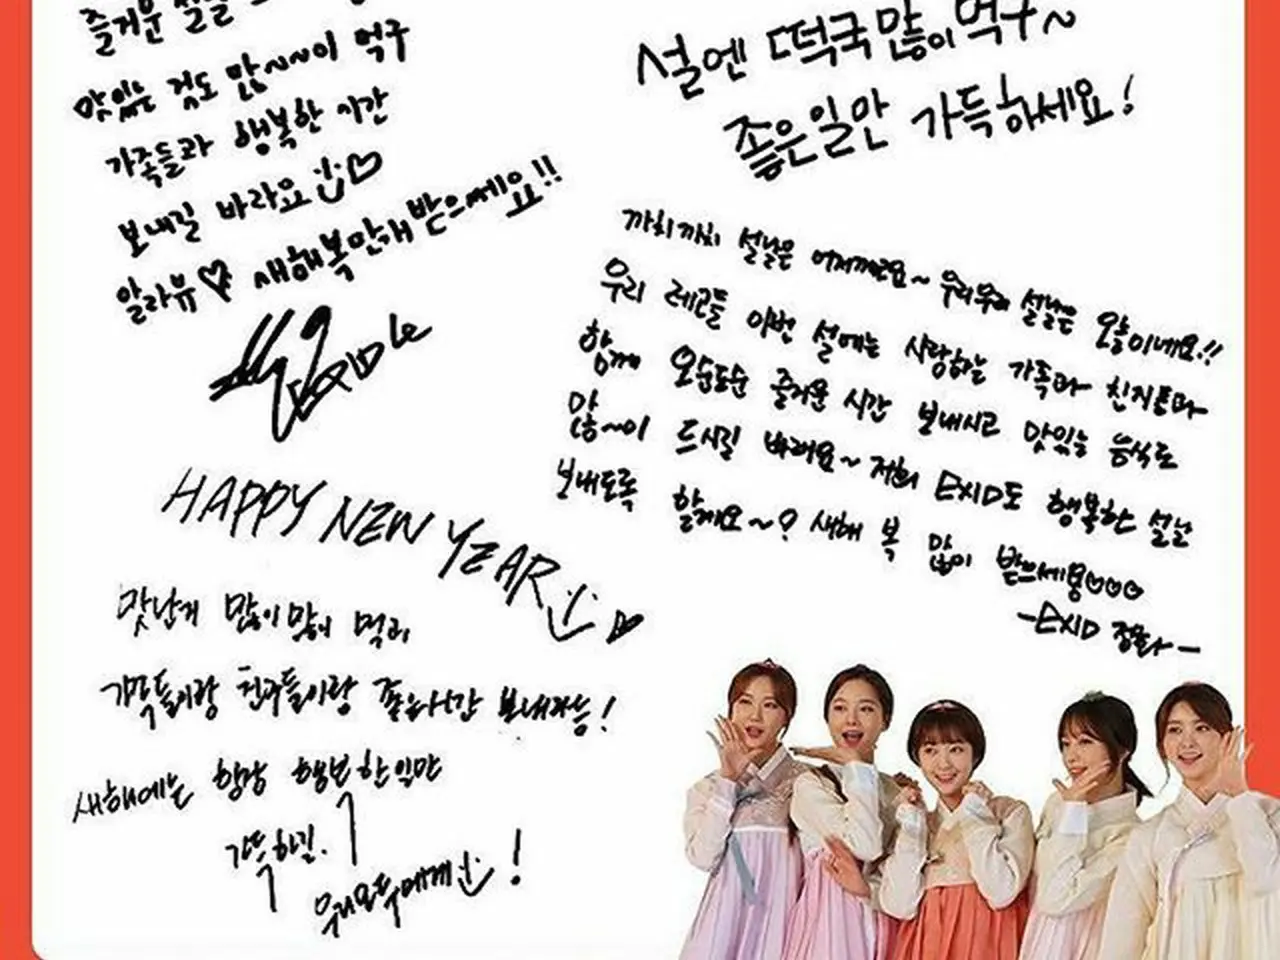 즐거운 설날
맛있는 것도 많~~이 먹구
가족들과 행복한 시간
보내길 바라요
알라뷰♡ 새해복 많이 받으쎄요!!
설엔 떡국많이 먹구~
좋은일만 가득하세요!
까치까치 설날은 어저께고요~ 우리우리 설날은 오늘이네요!!
우리 레고들 이번 설에는 사랑하는 가족과 친지들과
함께 오순도순 즐거운 시간 보내시고 맛있는 음식도
많~이 드시길 바래요~ 저희 EXID도 행복한 설날
보내도록 할게요~? 새해 복 많이 받으세용♡♡♡
-EXID 정화-
HAPPY NEW YEAR
맛난거 많이많이 먹고
가족들이랑 친구들이랑 좋은시간 보내라능!
새해에는 항상 행복한 일만
가득하길.
우리모두에게 !